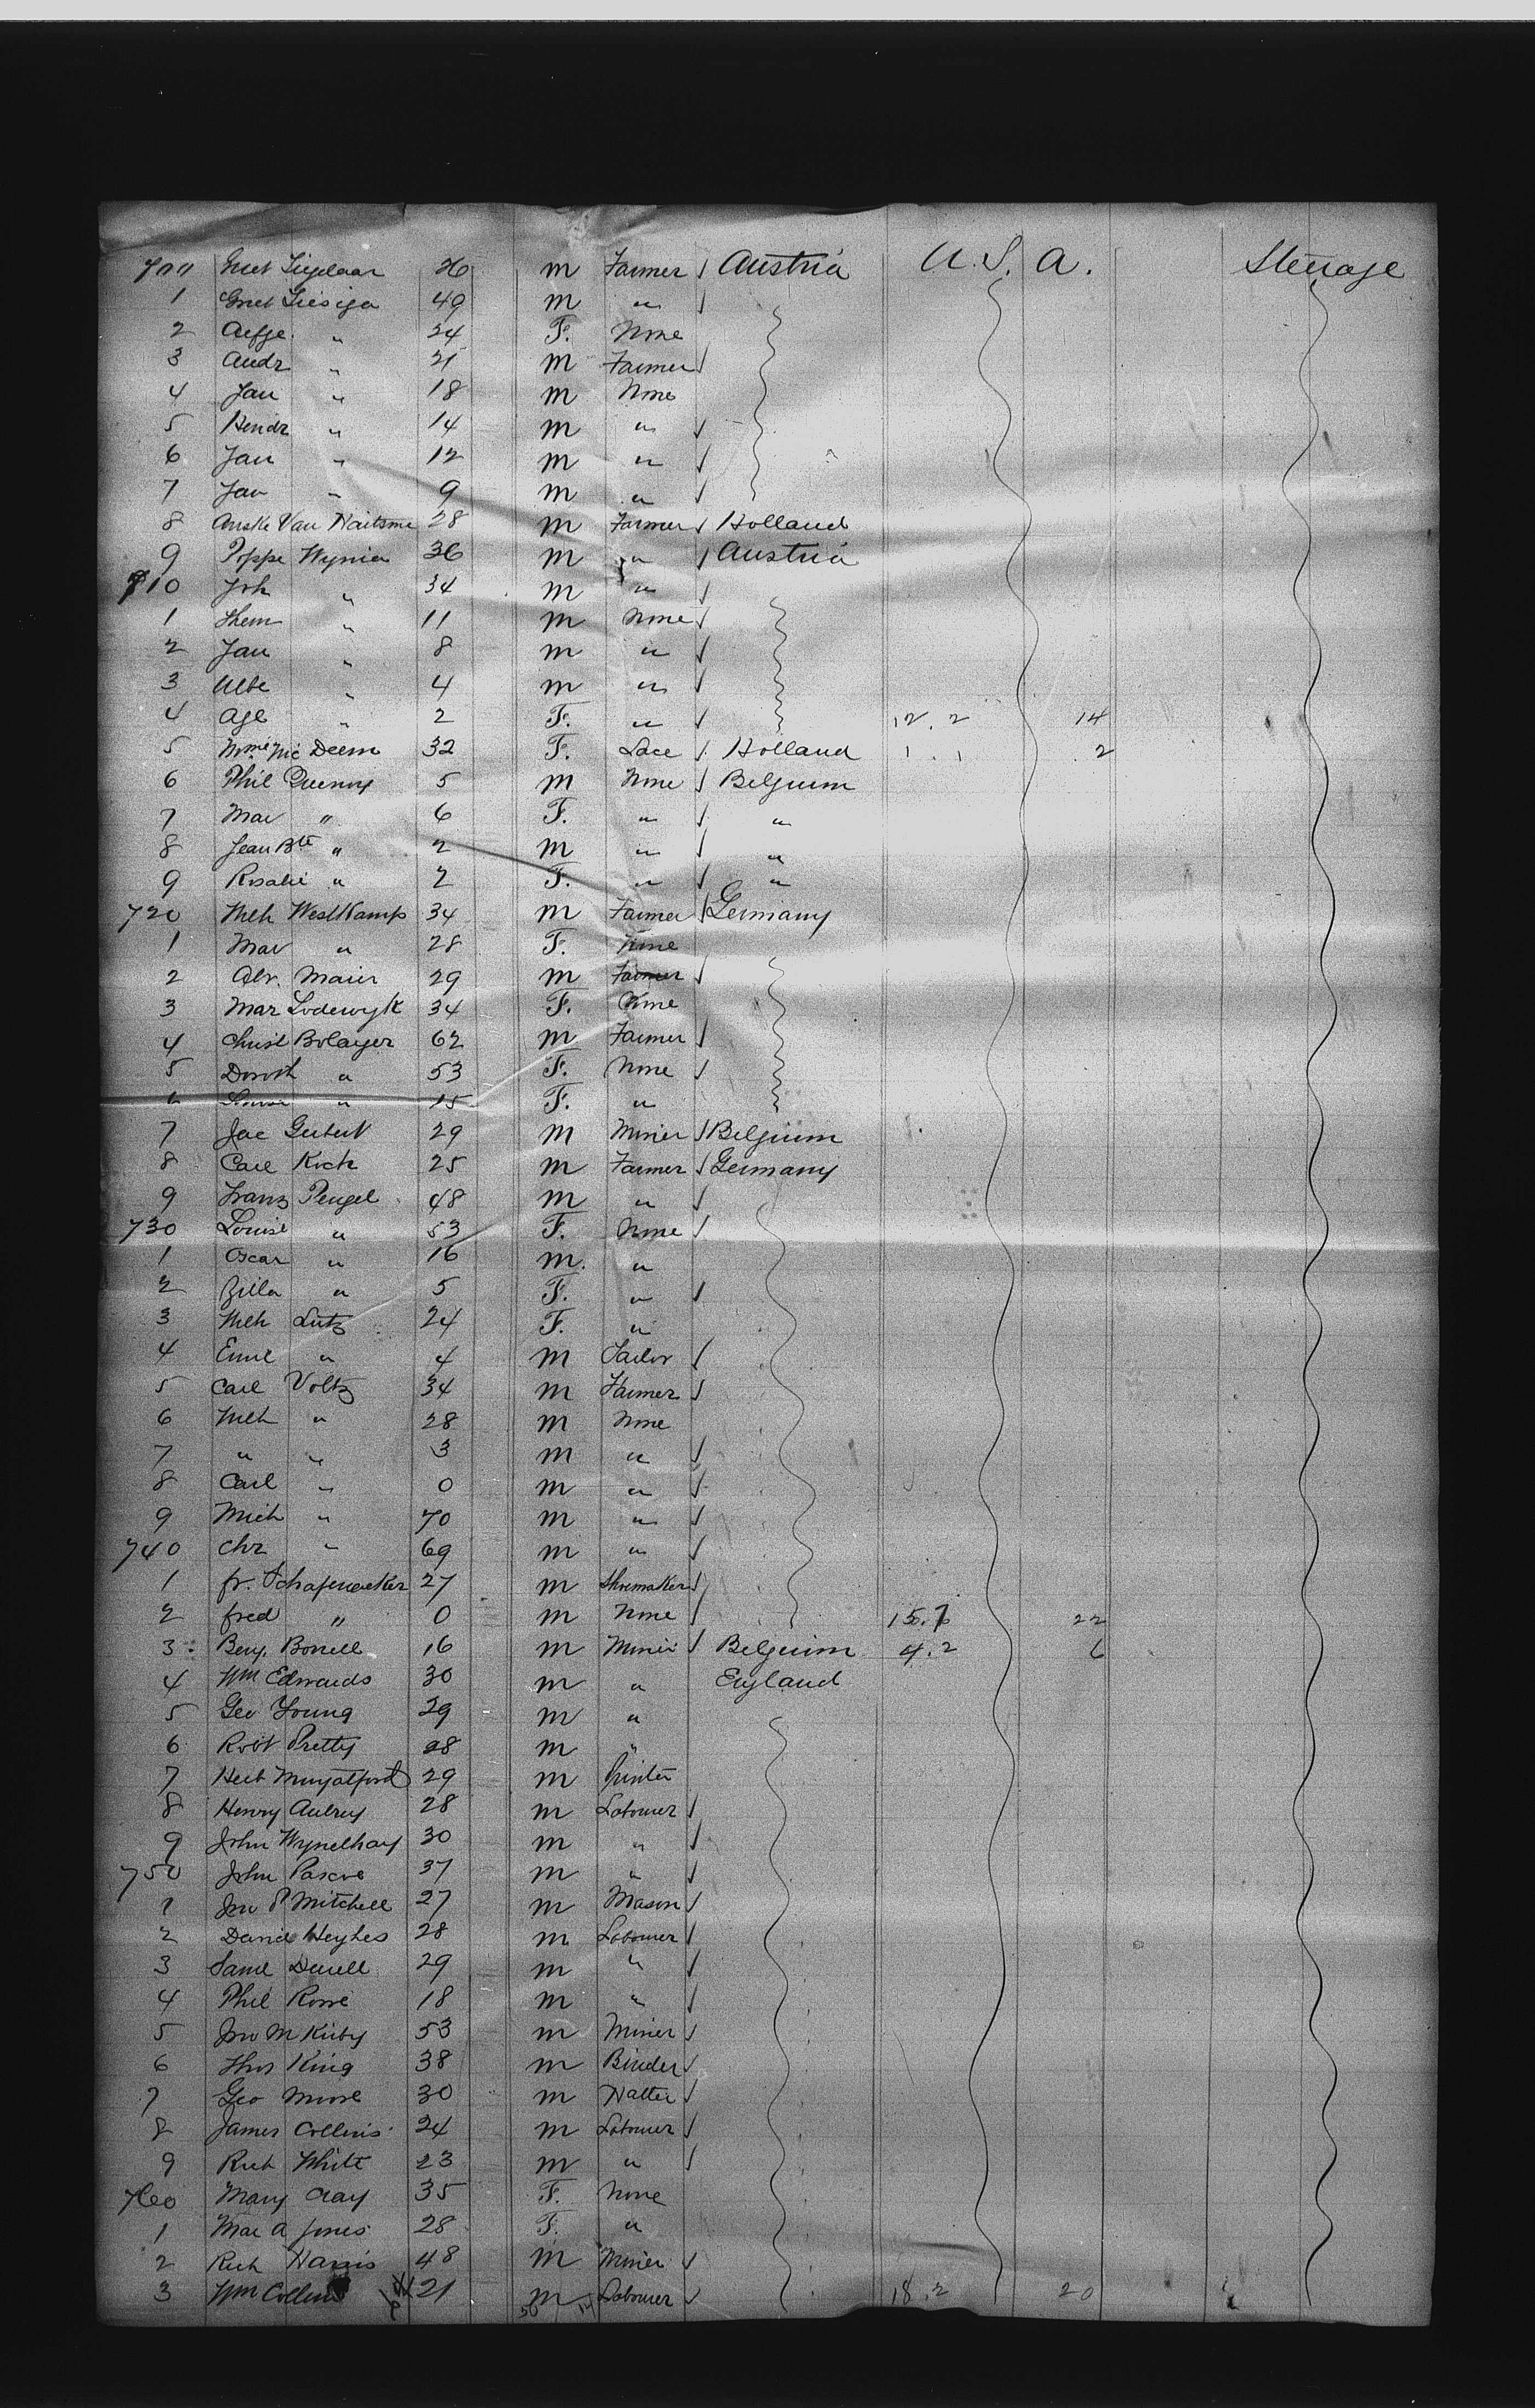 700 Griet 26 m Farmer Austria U. S. A. Steerage
1 Griet Giesiga 49 m "
2 Aefje " 24 F. None
3 Andr " 21 m Farmer
4 Jan " 18 m None
5 Hendr " 14 m "
6 Jan " 12 m "
7 Jan " 9 m "
8 Anske Van Haitsma 28 m Farmer Holland
9 Poppe Wynia 36 m " Austria
710 Joh " 34 m "
1 " 11 m None
2 Jan " 8 m "
3 Albe " 4 m "
4 Age " 2 F. " 12. 2 14
5 Mme Nic Deem 32 F. Lace Holland 1. 1 2
6 Phil 5 m None Belgium
7 Mar " 6 F. " "
8 Jean Bte " 2 m " "
9 Rosalie " 2 F. " "
720 Wilh WestKamp 34 m Farmer Germany
1 Mar " 28 F. None
2 Alr. Maier 29 m Farmer
3 Mar Lodewyk 34 F. None
4 Christ Bolayer 62 m Farmer
5 Doroth " 53 F. None
6 Louise " 15 F. "
7 Jac Geibert 29 m Miner Belgium
8 Carl Koch 25 m Farmer Germany
9 Franz Pengel 48 m "
730 Louise " 53 F. None
1 Oscar " 16 m. "
2 Zilla " 5 F. "
3 Wilh Lutz 24 F. "
4 Emil " 4 m Tailor
5 Carl Voltz 34 m Farmer
6 Wilh " 28 m None
7 " " 3 m "
8 Carl " 0 m "
9 Mich " 70 m "
740 Chr " 69 m "
1 fr. Schafenacker 27 m Shoemaker
2 fred " 0 m None 15.7 22
3 Benj. Bonell 16 m Miner Belguim 4. 2 6
4 Wm Edwards 30 m " England
5 Geo Young 29 m "
6 Robt Pretty 28 m "
7 Herb 29 m Printer
8 Henry Aubrey 28 m Labourer
9 John 30 m "
750 John Pascoe 37 m "
1 Jno P Mitchell 27 m Mason
2 Daniel Heyhes 28 m Labourer
3 Saml Durell 29 m "
4 Phil Rowe 18 m "
5 Jno M Kirby 53 m Miner
6 Thos King 38 m Binder
7 Geo Moore 30 m Hatter
8 James Collins 24 m Labourer
9 Rich White 23 m "
760 Mary Clay 35 F. None
1 Mar A Jones 28 F. "
2 Rich Harris 48 m Miner
3 Wm Collins 21 m Labourer 18. 2 20